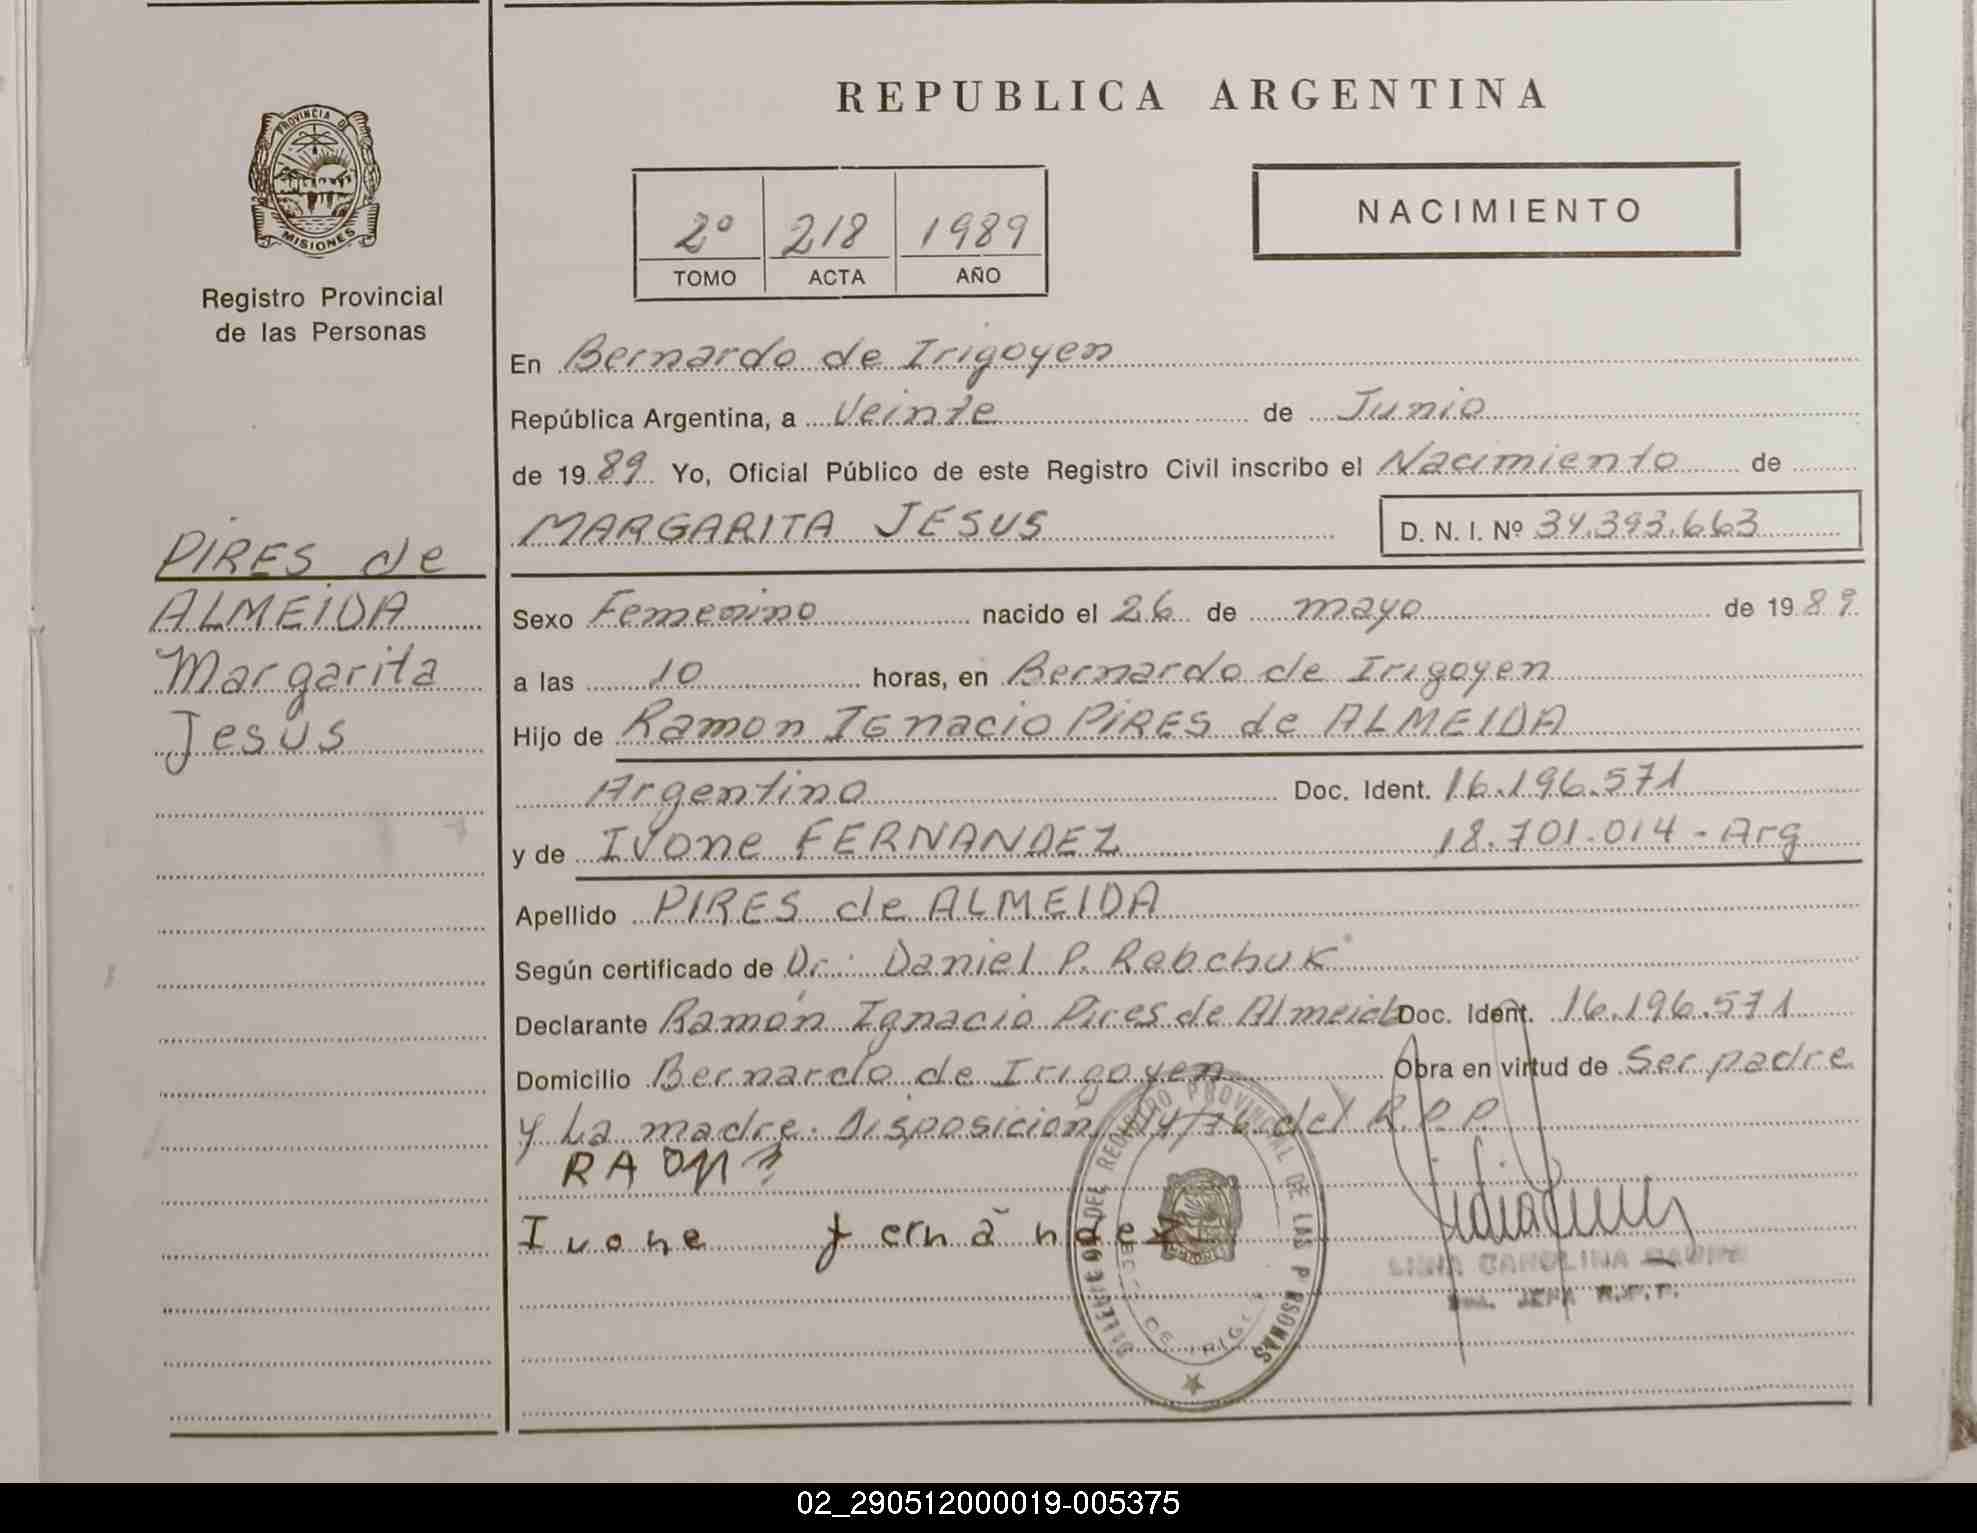 REPUBLICA ARGENTINA
PROVINCIA DE
MISIONES
Registro Provincial
de las Personas
2º 218 1989
TOMO ACTA AÑO
NACIMIENTO
En Bernardo de Irigoyen
República Argentina, a Veinte de Junio
de 1989 Yo, Oficial Público de este Registro Civil inscribo el Nacimiento de
MARGARITA JESUS D. N. I. Nº 34.393.663
PIRES de
ALMEIDA
Margarita
Jesus
Sexo Femenino nacido el 26 de mayo de 1989
a las 10 horas, en Bernardo de Irigoyen
Hijo de Ramon IGnacio PiRES de ALMEIDA
Argentino Doc. Ident. 16.196.571
y de IVone FERNANDEZ 18.701.014 - Arg
Apellido PIRES de ALMEIDA
Según certificado de Dr. Daniel P. Rebchuk
Declarante Ramón Ignacio Pires de Almeida Doc. Ident. 16.196.571
Domicilio Bernardo de Irigoyen Obra en virtud de Ser padre
y La madre. Disposición 114/76 del R.P.P.
Ivone Fernández
REGISTRO PROVINCIAL DE LAS PERSONAS
02_290512000019-005375